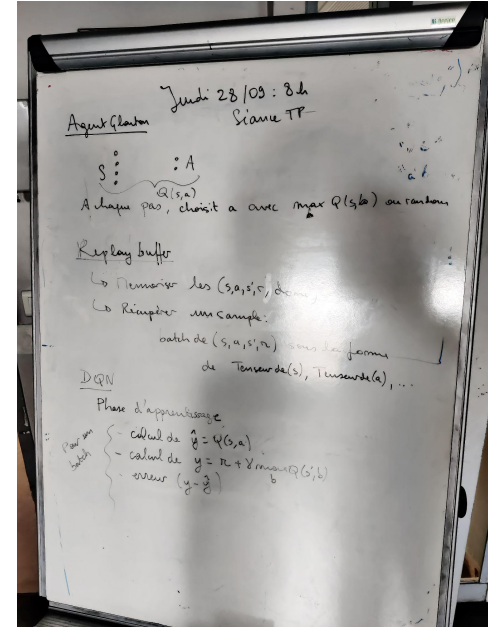 Jeudi 28/09 : 8h
Séance TP
Agent Glouton
S
A
Q(s,a)
A chaque pas, choisit a avec max Q(s,b) ou random
b
Replay buffer
↳ Memoriser les (s,a,s',r,
↳ Récupérer un sample:
batch de (s,a,s',r) sous la forme
de Tenseur de(s), Tenseur de(a), ...
DQN
Phase d'apprentissage
Pour un
batch
- calcul de ŷ = Q(s,a)
- calcul de y = r + γ max Q(s',b)
b
- erreur (y-ŷ)